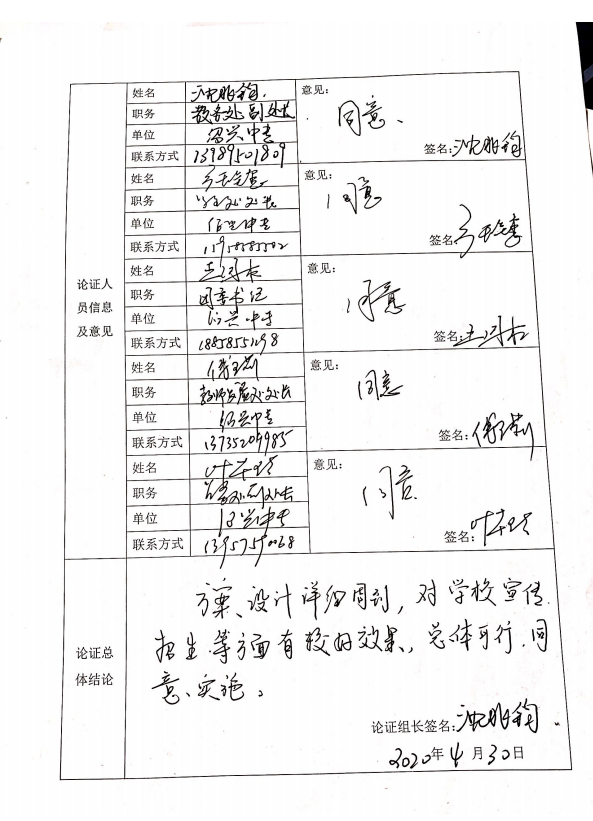 论证人
员信息
及意见
姓名 沈 意见:
职务 教务处副处长 同意、
单位 绍兴中专
联系方式 13989501809 签名:沈
姓名 意见:
职务 同意
单位 绍兴中专
联系方式 签名:
姓名 王 意见:
职务 团委书记 同意
单位 绍兴中专
联系方式 签名:王
姓名 傅 意见:
职务 教师发展处处长 同意
单位 绍兴中专
联系方式 13735209985 签名:傅
姓名 叶 意见:
职务 同意
单位 绍兴中专
联系方式 13957590068 签名:叶
论证总
体结论
方案、设计详细周到,对学校宣传
招生等方面有较好效果,总体可行.同
意、实施。
论证组长签名:沈
2020年4月30日